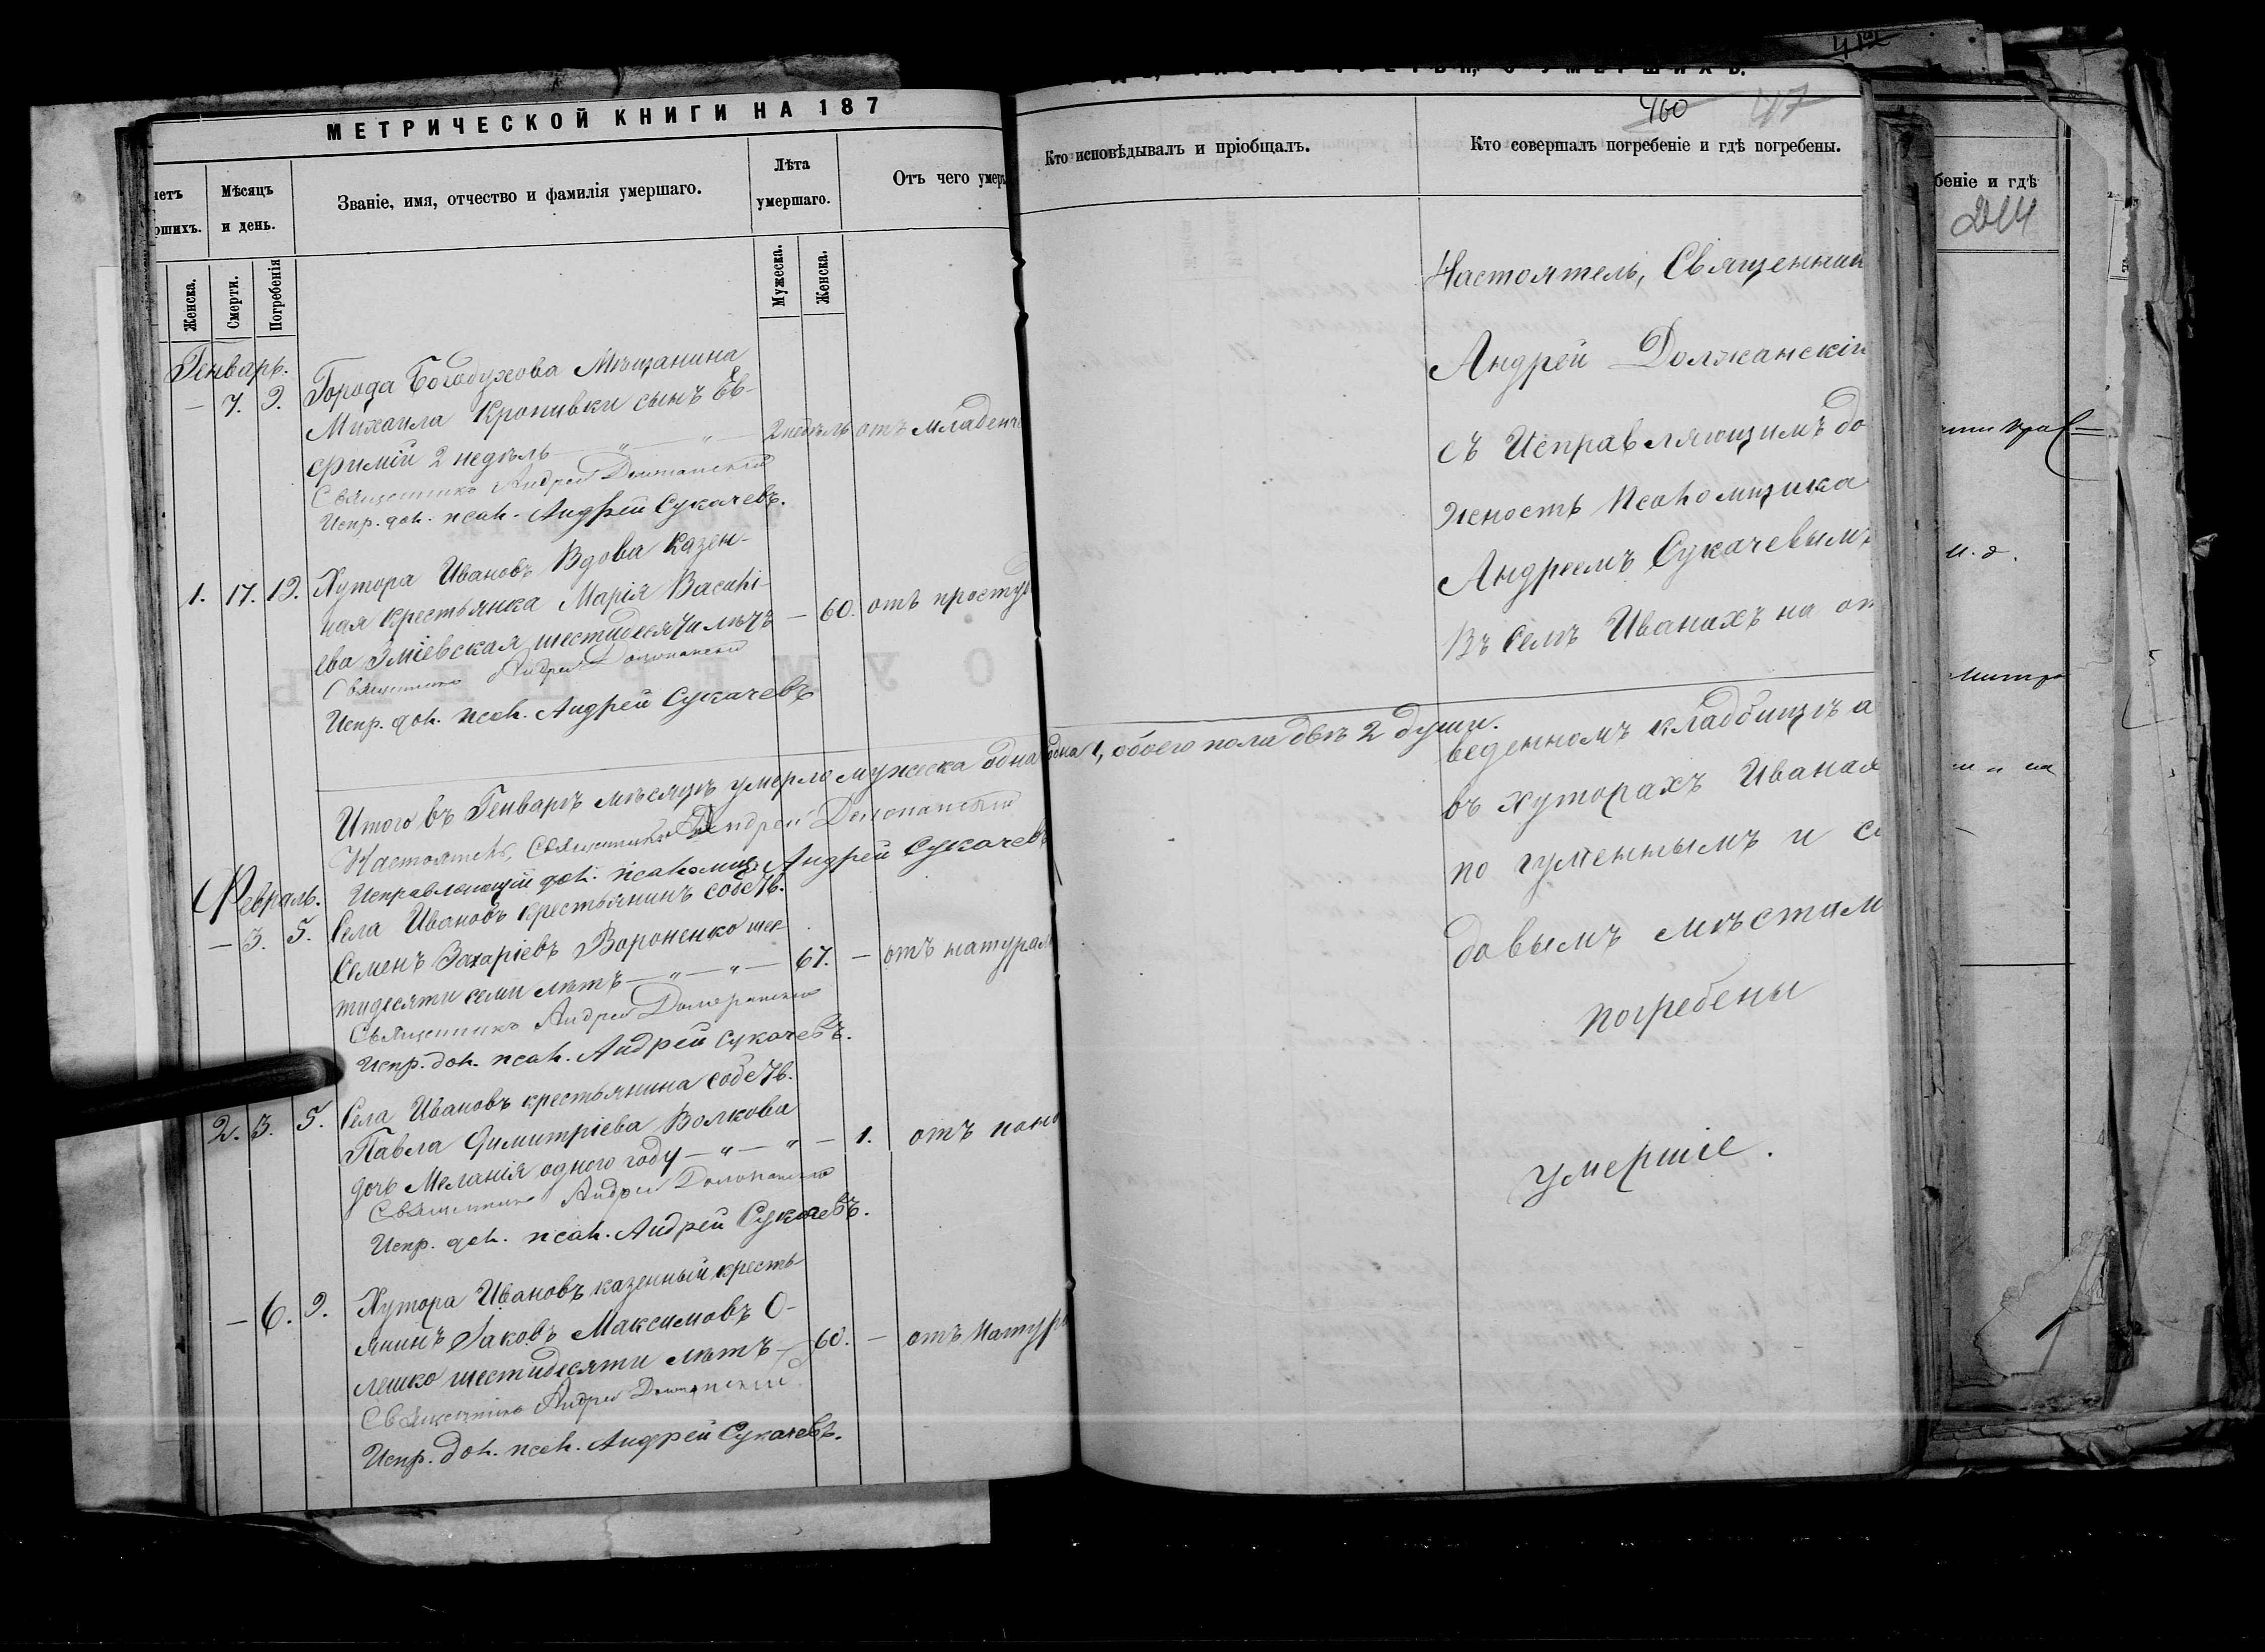 МЕТРИЧЕСКОЙ КНИГИ НА 187
Мѣсяцъ и день.
Званіе, имя, отчество и фамилія умершаго.
Лѣта умершаго.
Отъ чего умер
Женска.
Смерти.
Погребенія
Мужеска.
Женска.
Генварь.
— 7. 9. Города Богодухова Мѣщанина
Михаила Кропивки сынъ Ев-
фимій 2 недѣль — „ — „ — 2 недѣль отъ младенч
Священникъ Андрей Должанскій
Испр. дол. псал. Андрей Сукачевъ.
1. 17. 19. Хутора Ивановъ Вдова казен-
ная крестьянка Марія Василі-
ева Зміевская шестидесяти лѣтъ — 60. отъ простуд
Священникъ Андрей Должанскій
Испр. дол. псал. Андрей Сукачевъ
Итого въ Генварѣ мѣсяцѣ умерло мужеска одна
одна 1, обоего пола двѣ 2 души.
Настоятель, Священникъ Андрей Должанскій
Исправляющій дол. псаломщ. Андрей Сукачевъ
Февраль.
— 3. 5. Села Ивановъ крестьянинъ собств.
Семенъ Захаріевъ Вороненко шес-
тидесяти семи лѣтъ — „ — „ — 67. — отъ натурал
Священникъ Андрей Должанскій
Испр. дол. псал. Андрей Сукачевъ.
2. 3. 5. Села Ивановъ крестьянина собств.
Павла Димитріева Волкова
дочь Меланія одного году — „ — „ — 1. отъ поно
Священникъ Андрей Должанскій
Испр. дол. псал. Андрей Сукачевъ.
— 6. 9. Хутора Ивановъ казенный кресть-
янинъ Іаковъ Максимовъ О-
лешко шестидесяти лѣтъ — 60. — отъ натур
Священникъ Андрей Должанскій
Испр. дол. псал. Андрей Сукачевъ.
460 47
Кто исповѣдывалъ и пріобщалъ.
Кто совершалъ погребеніе и гдѣ погребены.
Настоятель, Священник
Андрей Должанскій
съ Исправляющимъ до
жность Псаломщика
Андреемъ Сукачевымъ
Въ Селѣ Иванахъ на от
веденномъ кладбищѣ а
въ хуторахъ Иваная
по гуменнымъ и са
довымъ мѣстам
погребены
умершіе.
беніе и гдѣ